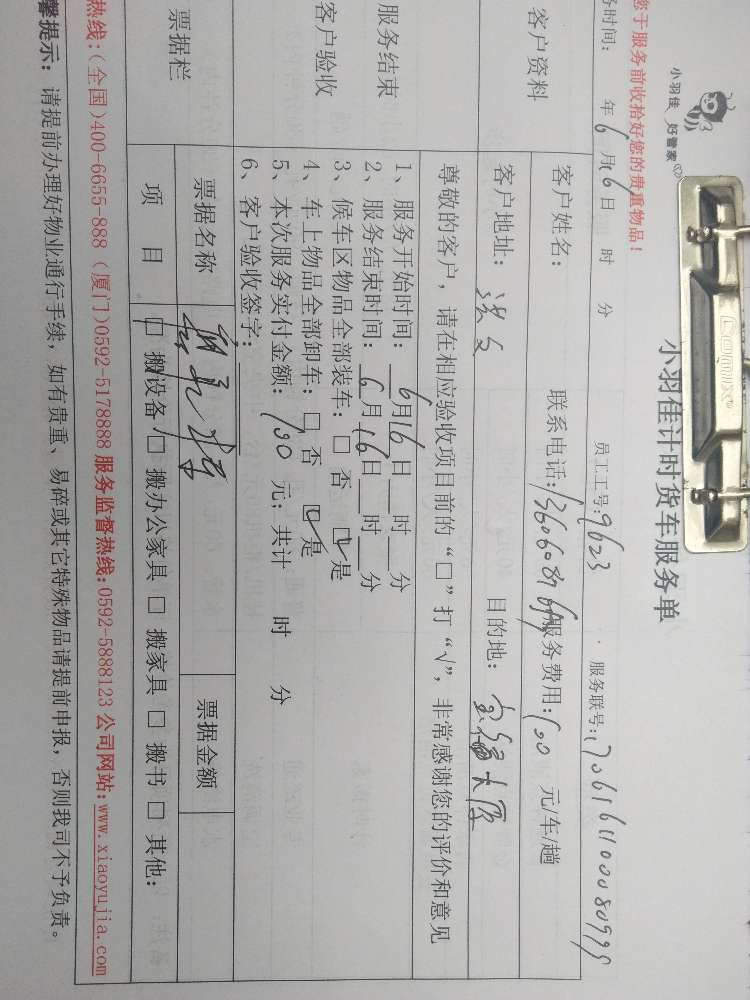 小羽佳 好管家
小羽佳计时货车服务单
您于服务前收拾好您的贵重物品！
务时间： 年6月16日 时 分 员工工号：9623 服务联号：
客户资料 客户姓名： 联系电话： 服务费用： 元/车/趟
客户地址： 目的地：
尊敬的客户，请在相应验收项目前的“□”打“√”，非常感谢您的评价和意见
服务结束
客户验收
1、服务开始时间： 6月16日 时 分
2、服务结束时间： 6月16日 时 分
3、候车区物品全部装车：□ 否 是
4、车上物品全部卸车：□ 否 是
5、本次服务实付金额： 元；共计 时 分
6、客户验收签字：
票据栏 票据名称 票据金额
项 目 □ 搬设备 □ 搬办公家具 □ 搬家具 □ 搬书 □ 其他：
热线：（全国）400-6655-888（厦门）0592-5178888 服务监督热线：0592-5888123 公司网站：www.xiaoyujia.com
馨提示：请提前办理好物业通行手续，如有贵重、易碎或其它特殊物品请提前申报，否则我司不予负责。